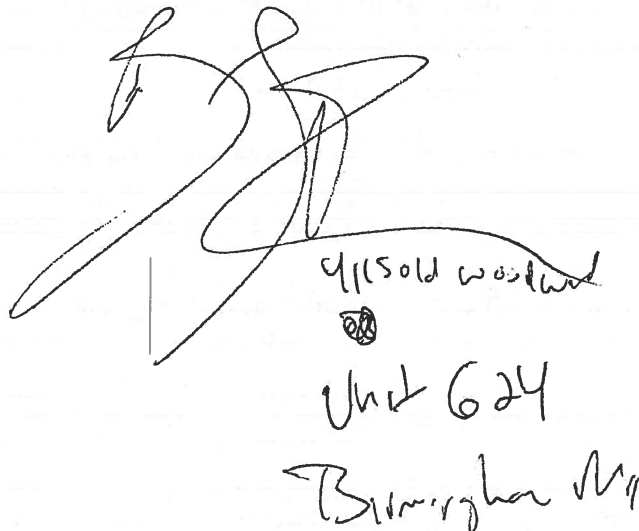 411 S Old Woodward
Unit 624
Birmingham MI